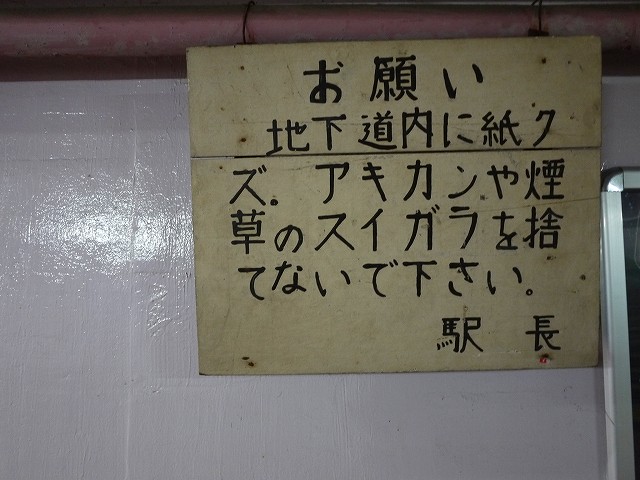 お願い
地下道内に紙ク
ズ.アキカンや煙
草のスイガラを捨
てないで下さい。
駅長